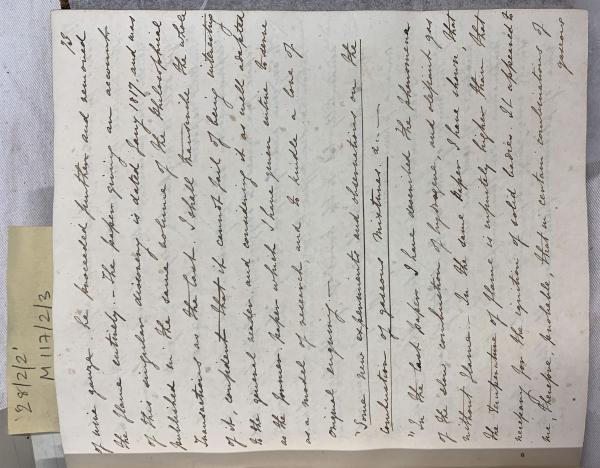 78
of wire gauze he proceeded further and removed
the flame entirely. — The paper giving an account
of this singular discovery is dated Jany 1817 and was
published in the same volume of the Philosophical
Transactions as the last. I shall transcribe the whole
of it, confident that it cannot fail of being interesting
to the general reader and considering it as well adapted
as the former paper which I have given entire to serve
as a model of research, and to kindle a love of
original enquiry. —
"Some new experiments and observations on the
combustion of gaseous mixtures &c. —
"In the last paper I have described the phenomena
of the slow combustion of hydrogen, and olefiant gas
without flame. In the same paper I have shown, that
the temperature of flame is infinitely higher than that
necessary for the ignition of solid bodies. It appeared to
me, therefore, probable, that in certain combinations of
gaseous
'28/2/2'
M 117/2/3